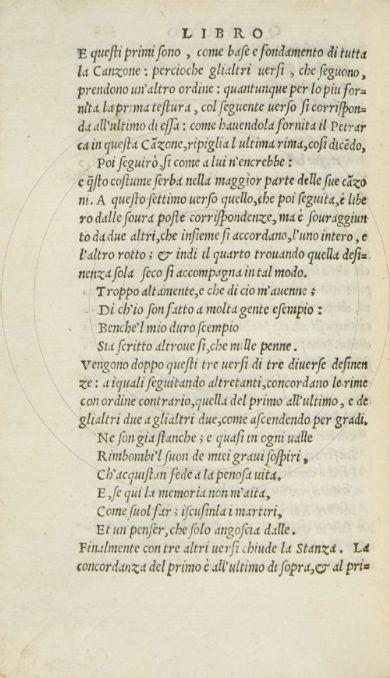 LIBRO
E questi primi sono, come base e fondamento di tutta
la Canzone: percioche glialtri uersi, che seguono,
prendono un'altro ordine: quantunque per lo piu for-
nita la prima testura, col seguente uerso si corrispon-
da all'ultimo di essa: come hauendola fornita il Petrar
ca in questa Cãzone, ripiglia l ultima rima, cosi dicẽdo,
Poi seguirò, si come a lui n'encrebbe:
e q̃sto costume serba nella maggior parte delle sue cãzo
ni. A questo settimo uerso quello, che poi seguita, è libe
ro dalle soura poste corrispondenze, ma è souraggiun
to da due altri, che insieme si accordano, l'uno intero, e
l'altro rotto; & indi il quarto trouando quella desi-
nenza sola seco si accompagna in tal modo.
Troppo altamente, e che di cio m'auenne;
Di ch'io son fatto a molta gente esempio:
Benche'l mio duro scempio
Sta scritto altroue sì, che mille penne.
Vengono doppo questi tre uersi di tre diuerse desinen
ze: a iquali seguitando altretanti, concordano le rime
con ordine contrario, quella del primo all'ultimo, e de
glialtri due a glialtri due, come ascendendo per gradi.
Ne son gia stanche; e quasi in ogni ualle
Rimbombi'l suon de miei graui sospiri,
Ch'acquistan fede a la penosa uita.
E, se qui la memoria non m'aita,
Come suol far; iscusinla i martiri,
Et un penser, che solo angoscia dalle.
Finalmente con tre altri uersi chiude la Stanza. La
concordanza del primo è all'ultimo di sopra, & al pri-